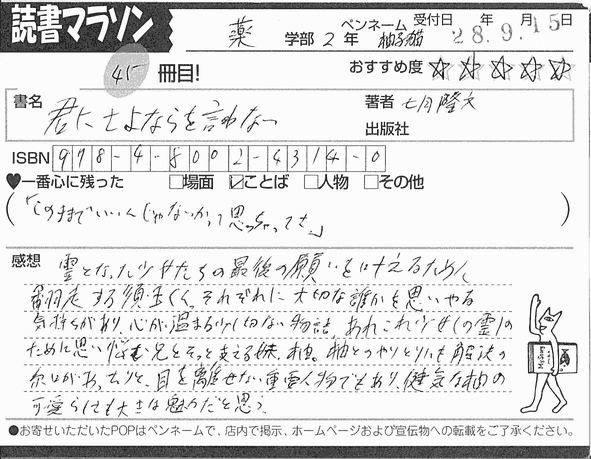 読書マラソン
薬 学部 2 年 ペンネーム 柚子猫 受付日 年 月 日
28.9.15
45 冊目! おすすめ度 ☆☆☆☆☆
書名 君にさよならを言わない 著者 七月隆文
出版社
ISBN 978-4-8002-4314-0
♥一番心に残った □場面 ☑ことば □人物 □その他
(「このままでいいんじゃないかって思っちゃってさ」)
感想 霊となった少女たちの最後の願いを叶えるために
翻弄する須玉くん。それぞれに大切な誰かを思いやる
気持ちがあり、心が温まる少し切ない物語。あれこれ少女(の霊)の
ために思い悩む兄をそっと支える妹、柚。柚とのやりとりにも解決の
糸口があったりと、目を離せない重要人物でもあり、健気な柚の
可愛らしさも大きな魅力だと思う。
Mystery
●お寄せいただいたPOPはペンネームで、店内で掲示、ホームページおよび宣伝物への転載をご了承ください。